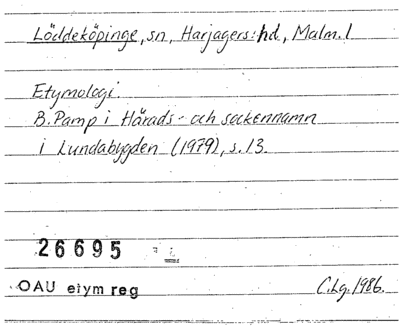 Löddeköpinge, sn, Harjagers hd, Malm. l
Etymologi
B. Pamp i Härads- och sockennamn
i Lundabygden (1979), s. 13.
26695
OAU etym reg
C.Lg. 1986.